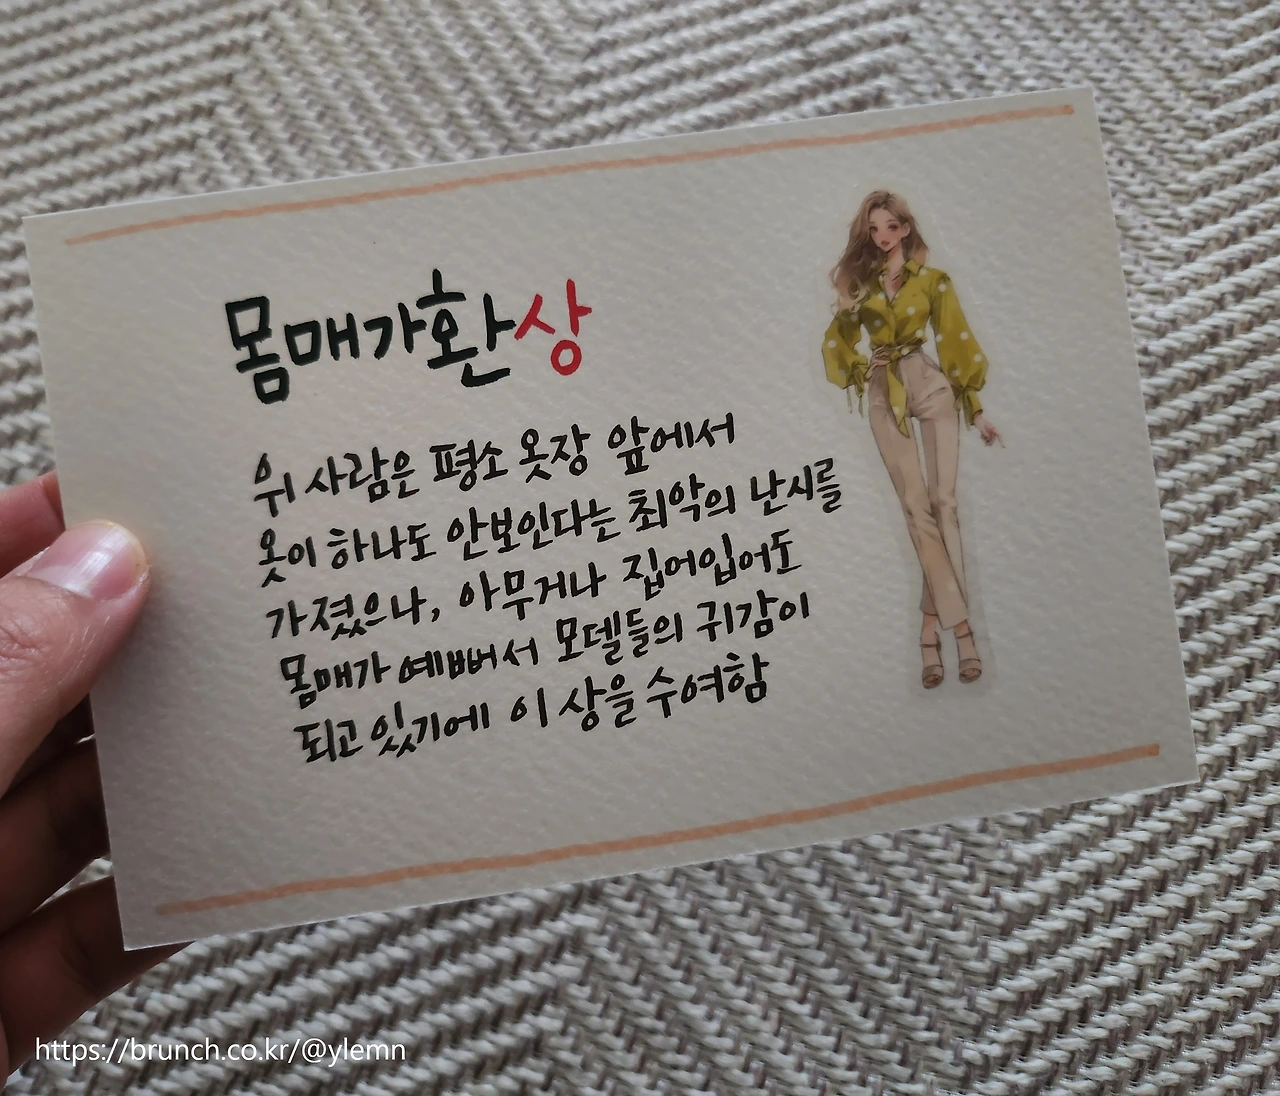 몸매가환상
위 사람은 평소 옷장 앞에서
옷이 하나도 안보인다는 최악의 난시를
가졌으나, 아무거나 집어입어도
몸매가 예뻐서 모델들의 귀감이
되고 있기에 이 상을 수여함
https://brunch.co.kr/@ylemn